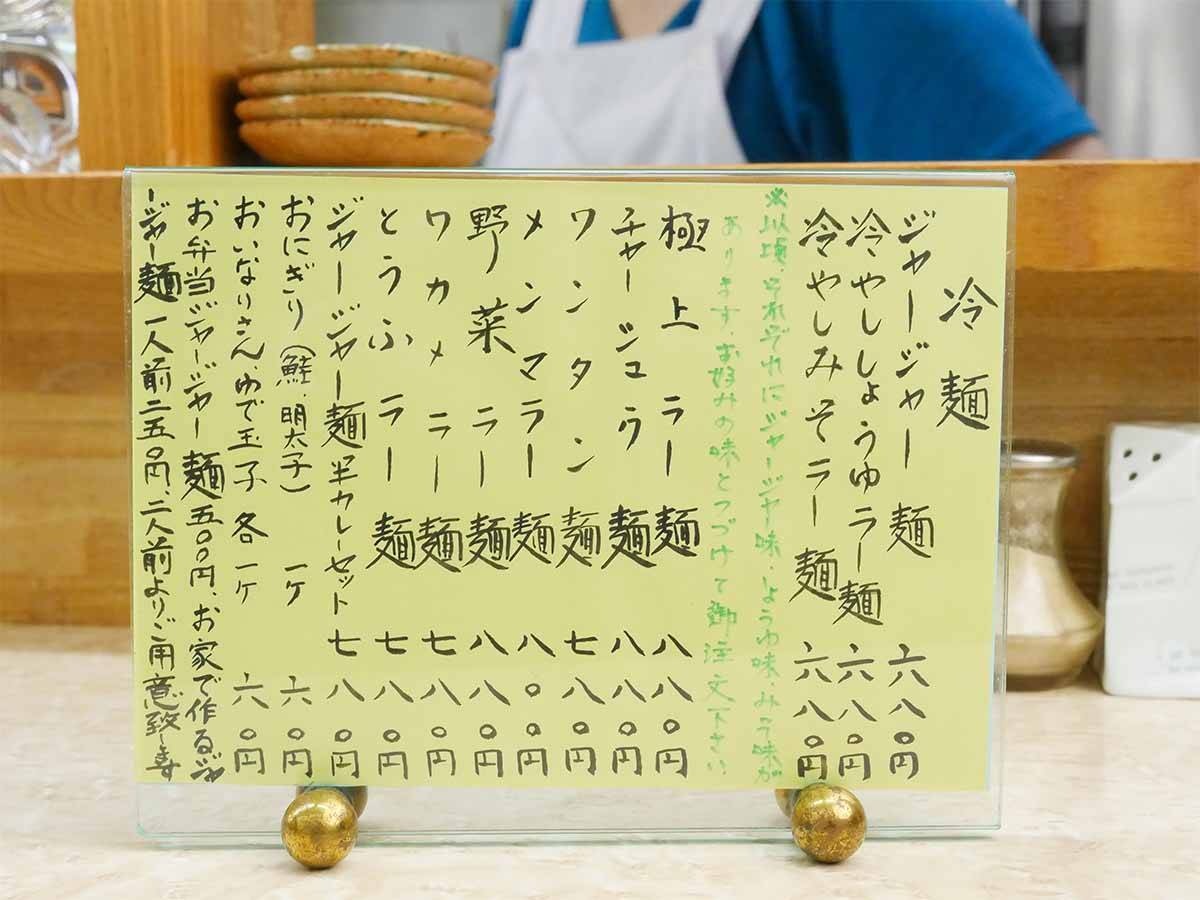 冷麺
ジャージャー麺 六八〇円
冷やししょうゆラー麺 六八〇円
冷やしみそラー麺 六八〇円
※以頃、それぞれにジャージャー味・しょうゆ味・みそ味が
あります、お好みの味とつづけて御注文下さい
極上ラー麺 八八〇円
チャーシュウ麺 八八〇円
ワンタン麺 七八〇円
メンマラー麺 八〇〇円
野菜ラー麺 八八〇円
ワカメラー麺 七八〇円
とうふラー麺 七八〇円
ジャージャー麺半カレーセット 七八〇円
おにぎり(鮭、明太子) 一ケ 六〇円
おいなりさん、ゆで玉子 各一ケ 六〇円
お弁当ジャージャー麺五〇〇円、お家で作るジャ
ージャー麺一人前二五〇円、二人前よりご用意致します